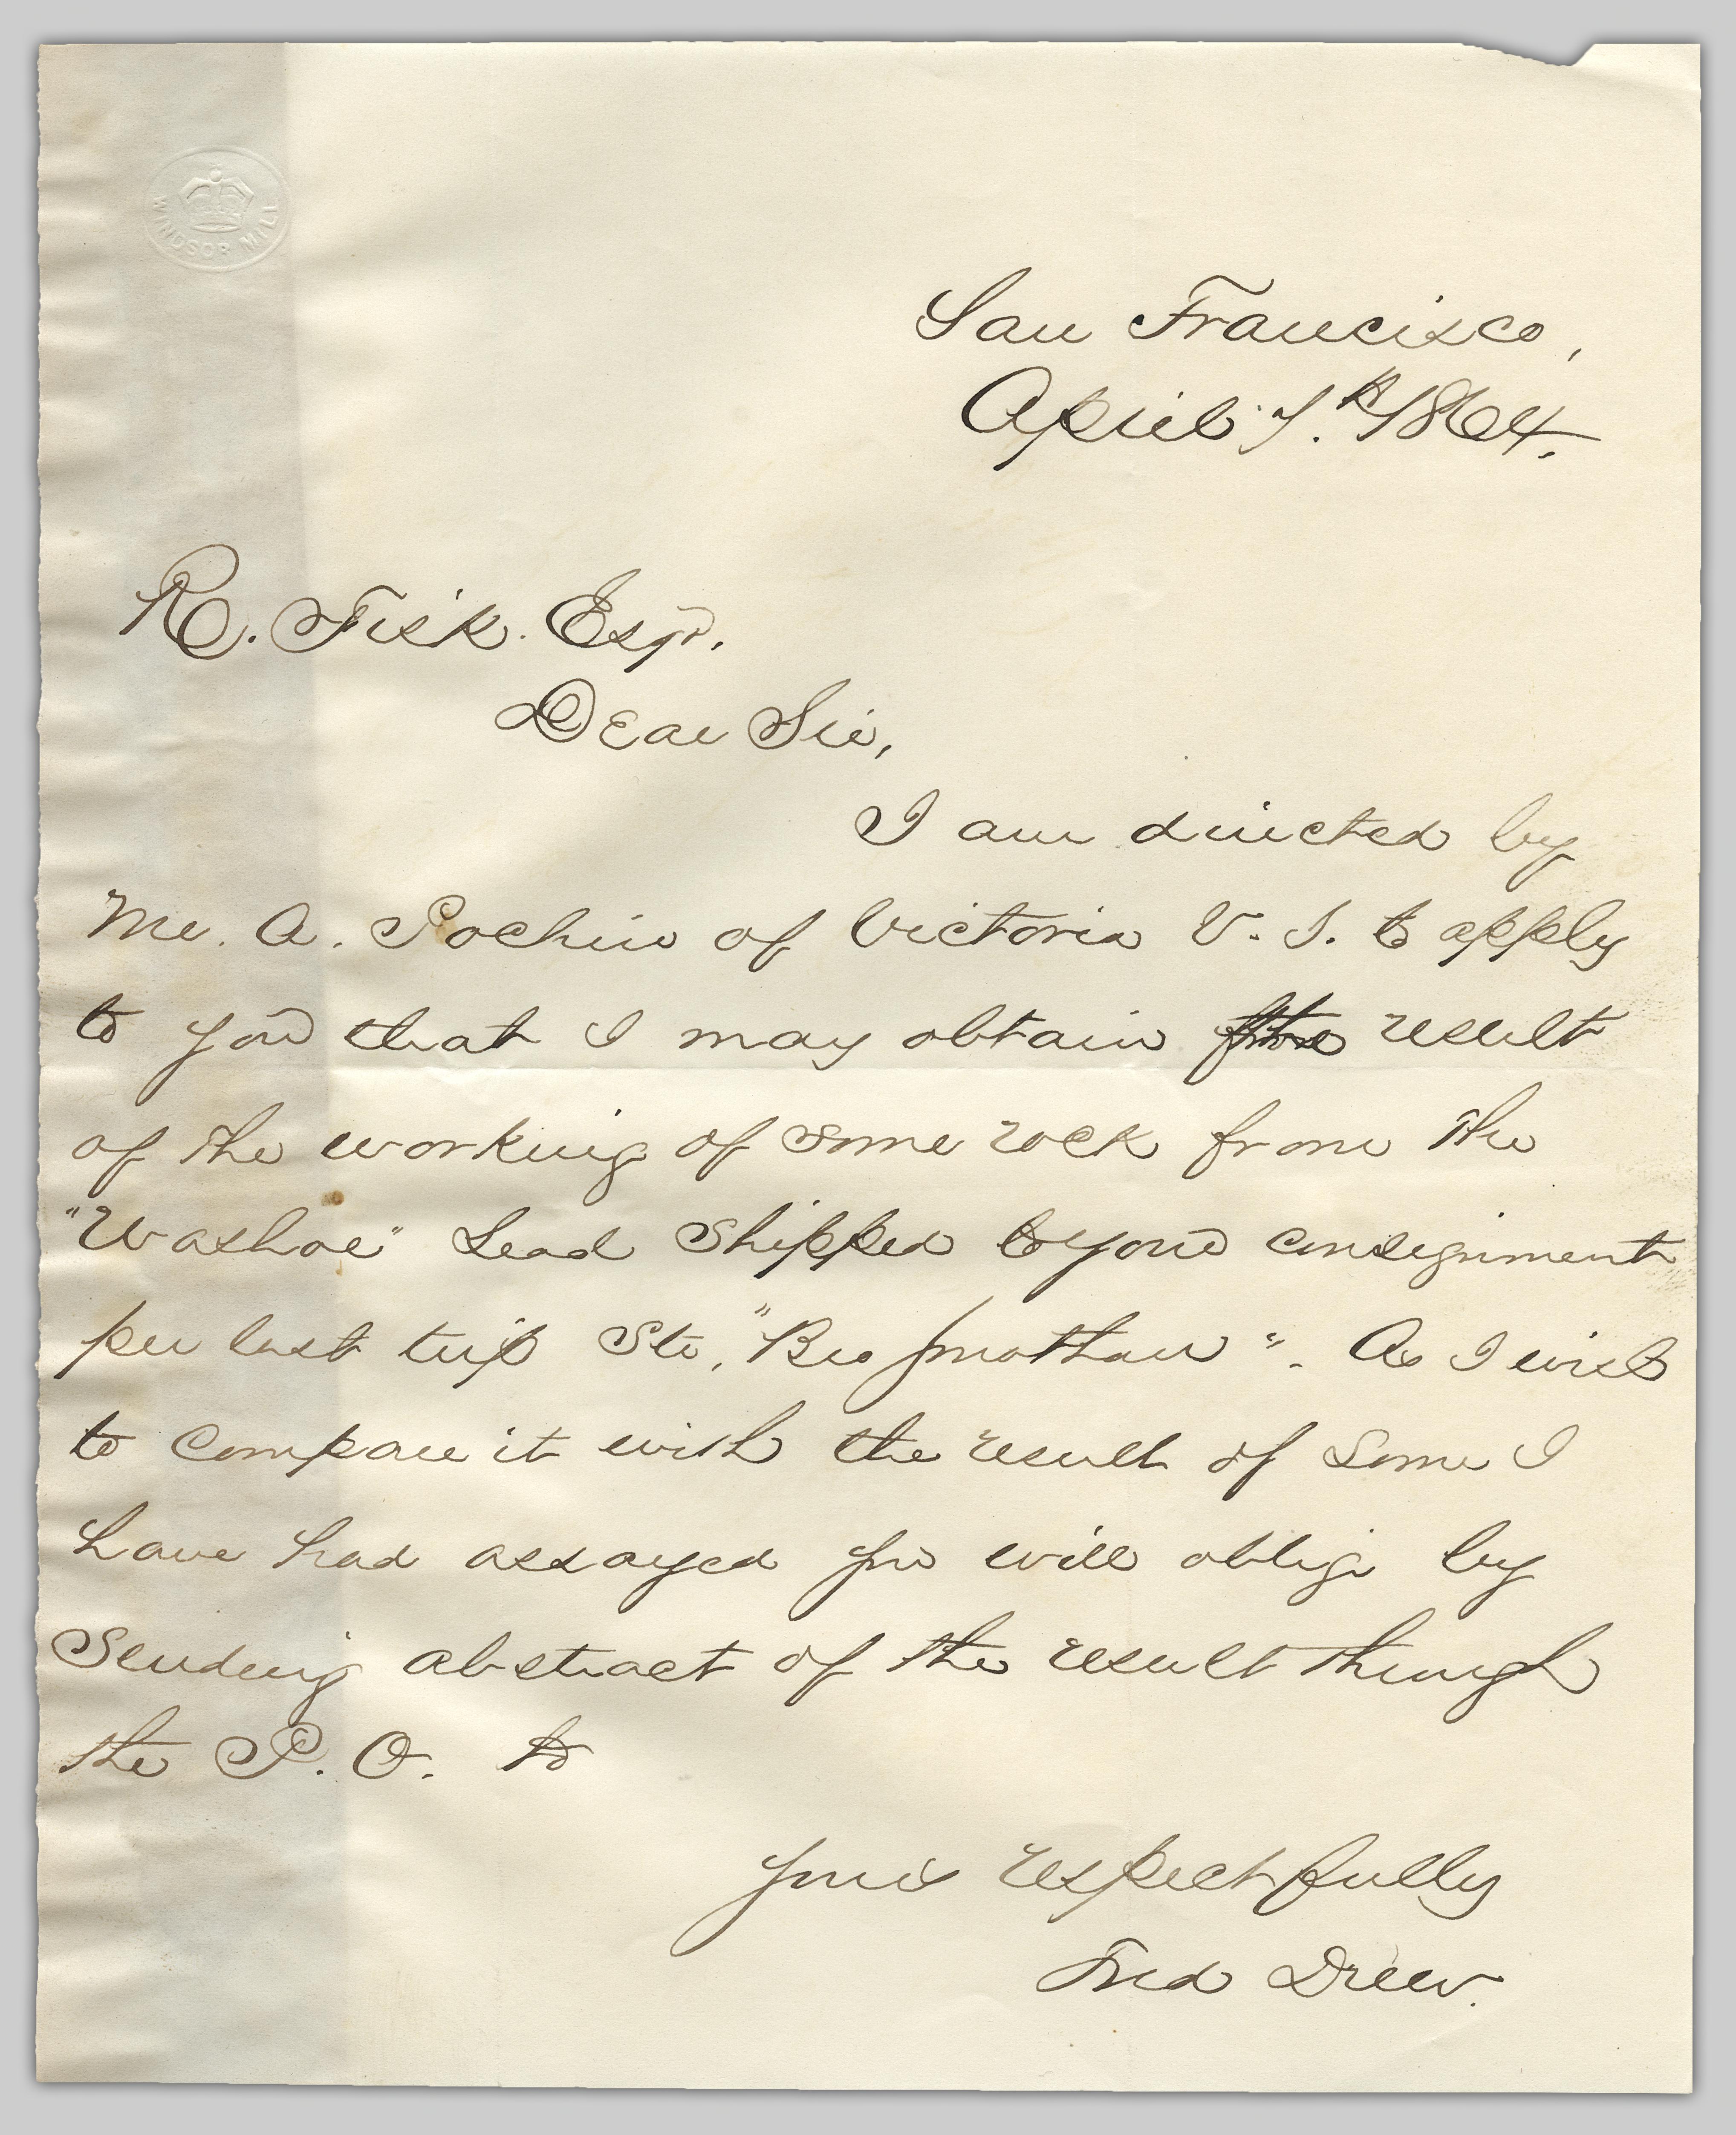 WINDSOR MILL
San Francisco,
April 7.th 1864.
R. Fisk. Esqr.
Dear Sir,
I am directed by
Mr. A. Pochin of Victoria V. I. to apply
to you that I may obtain the result
of the working of some rock from the
"Washoe" Lead Shipped to your consignment
per last trip Str. "Bro Jonathan". As I wish
to compare it with the result of some I
have had assayed you will oblige by
Sending abstract of the result through
the P. O. to
Yours respectfully
Fred Drew.